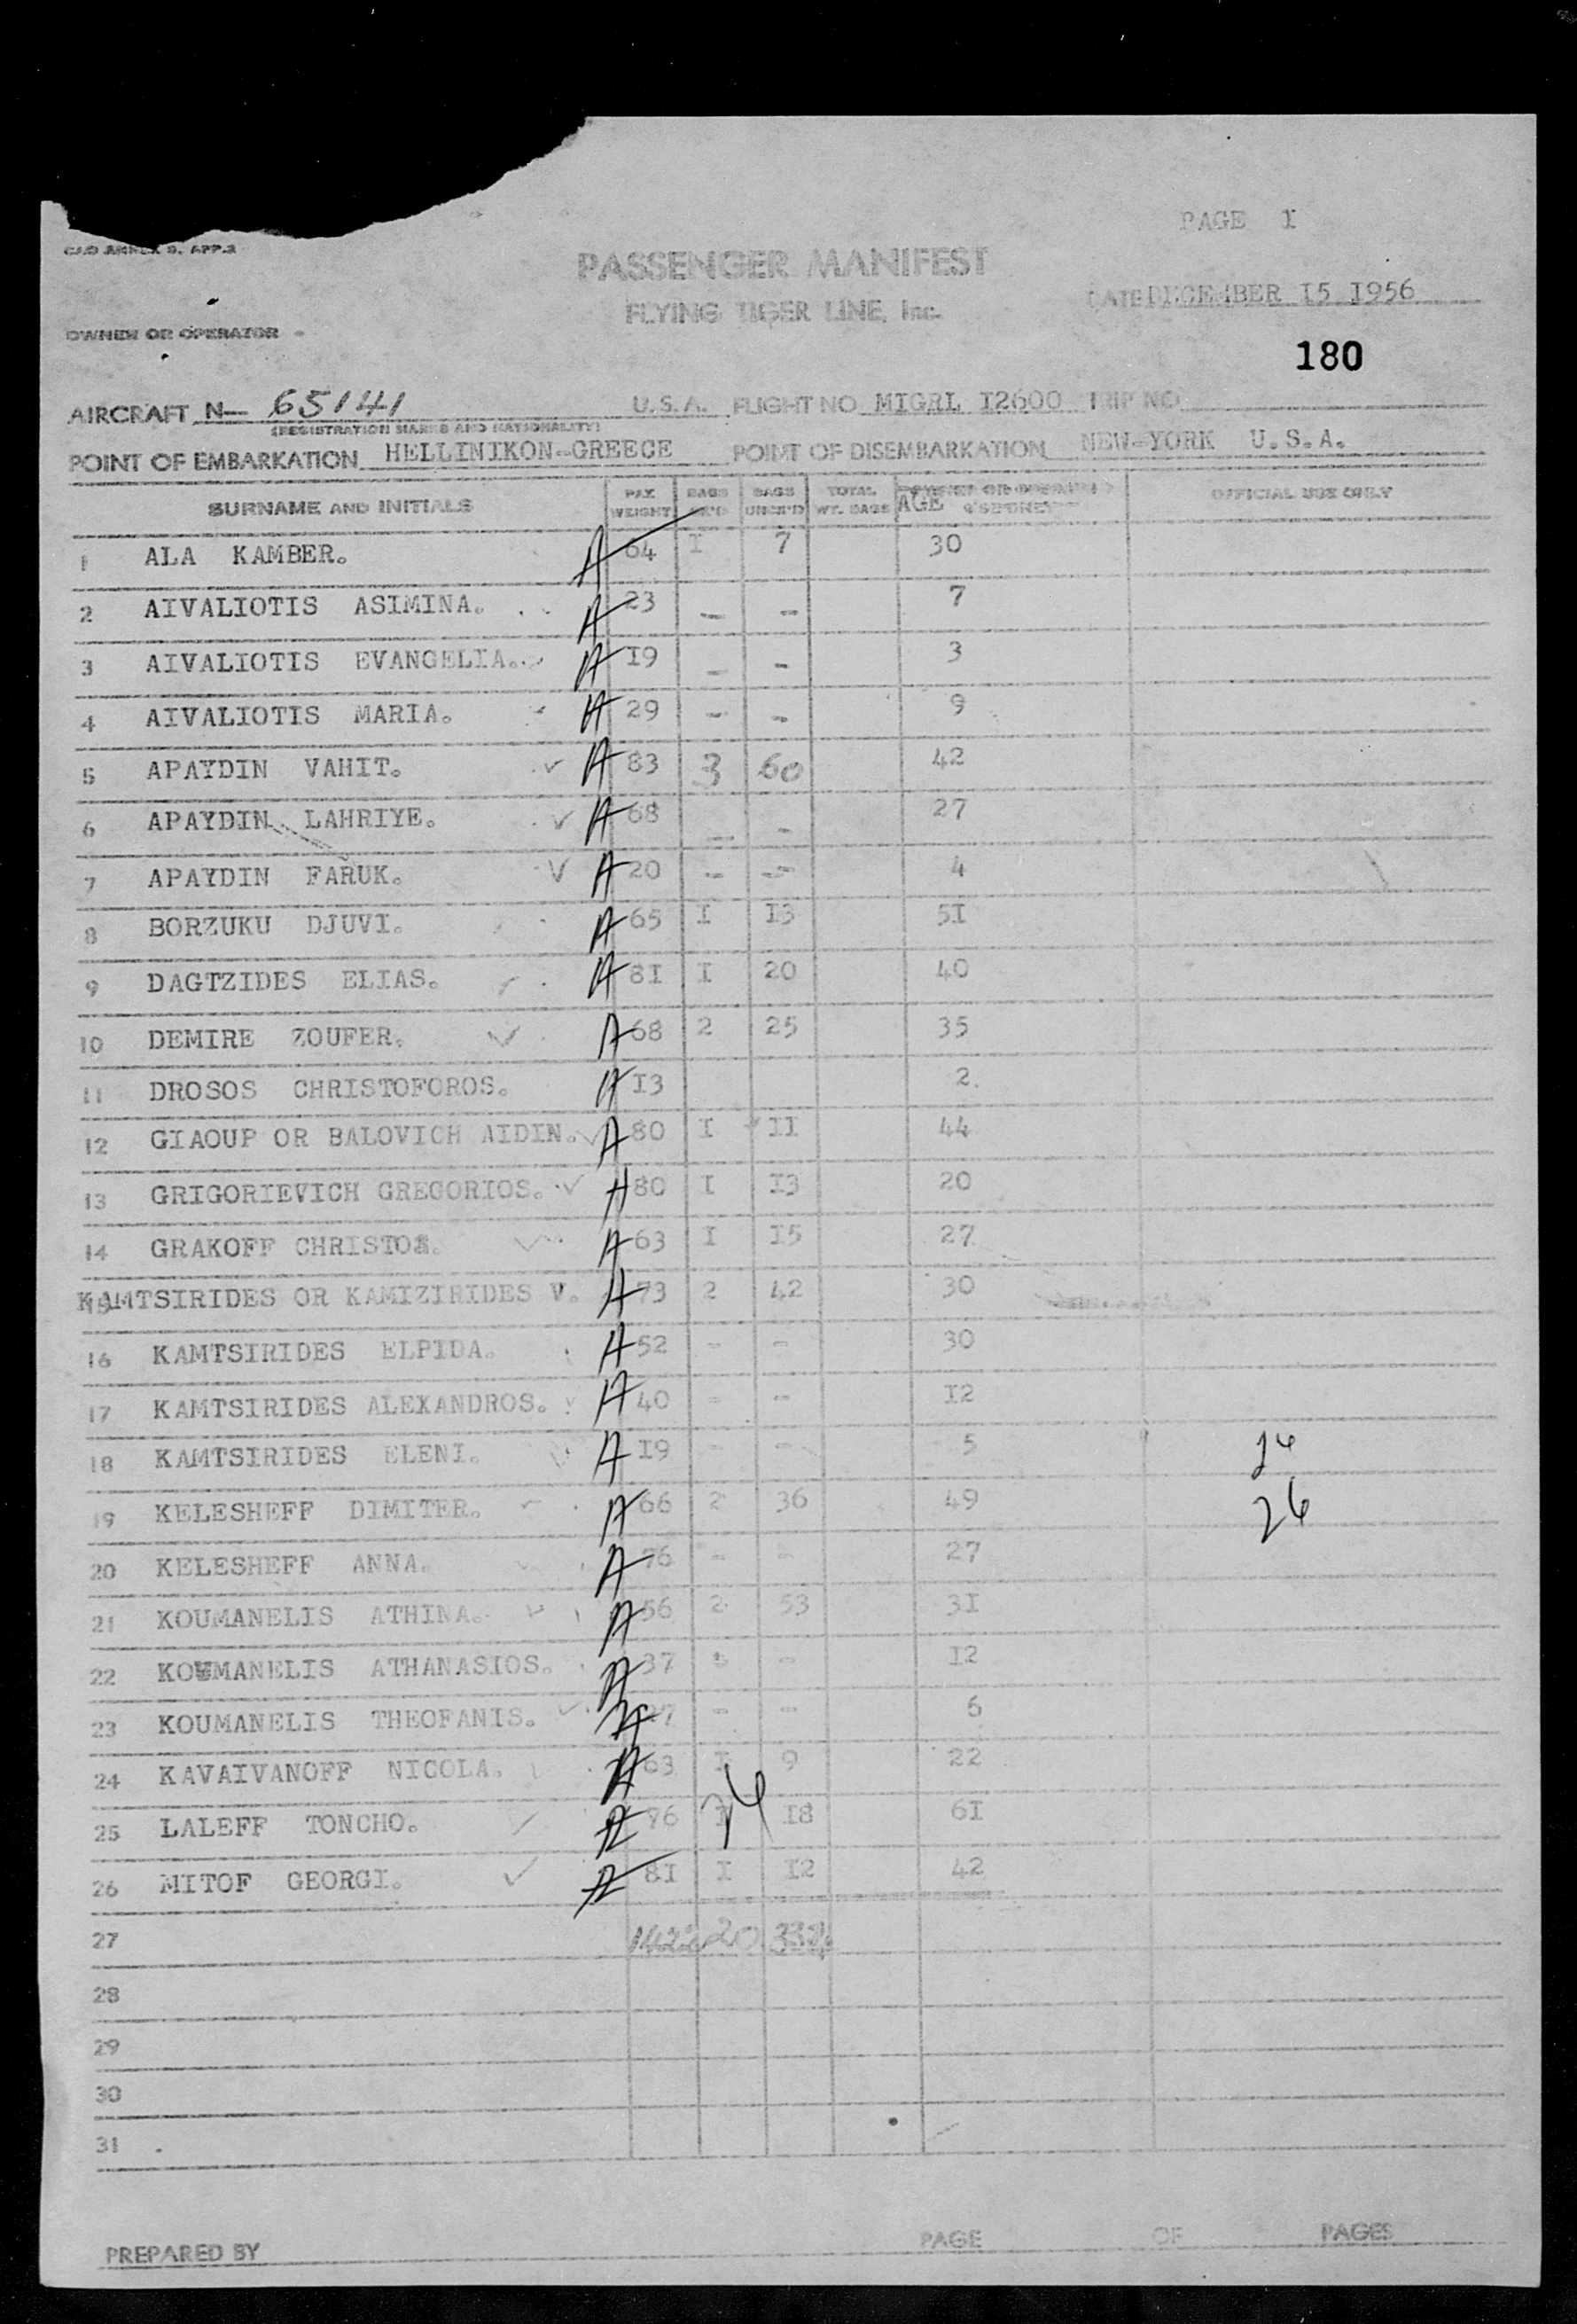 PAGE I
CAO ANNEX 9, APP.2
PASSENGER MANIFEST
FLYING TIGER LINE, Inc.
DATE DECEMBER I5 I956
OWNER OR OPERATOR
180
AIRCRAFT N— 65141 U.S.A. FLIGHT NO MIGRL I2600 TRIP NO
(REGISTRATION MARKS AND NATIONALITY)
POINT OF EMBARKATION HELLINIKON-GREECE POINT OF DISEMBARKATION NEW-YORK U.S.A.
SURNAME AND INITIALS PAX WEIGHT BAGS BAGS UNCK'D TOTAL WT. BAGS AGE OFFICIAL USE ONLY
1 ALA KAMBER. A 64 I 7 30
2 AIVALIOTIS ASIMINA. A 23 - - 7
3 AIVALIOTIS EVANGELIA. A I9 - - 3
4 AIVALIOTIS MARIA. A 29 - - 9
5 APAYDIN VAHIT. ✓ A 83 3 60 42
6 APAYDIN LAHRIYE. ✓ A 68 - - 27
7 APAYDIN FARUK. ✓ A 20 - - 4
8 BORZUKU DJUVI. A 65 I I3 5I
9 DAGTZIDES ELIAS. A 8I I 20 40
10 DEMIRE ZOUFER. ✓ A 68 2 25 35
11 DROSOS CHRISTOFOROS. A I3 2.
12 GIAOUP OR BALOVICH AIDIN. ✓ A 80 I II 44
13 GRIGORIEVICH GREGORIOS. ✓ A 80 I I3 20
14 GRAKOFF CHRISTOS. ✓ A 63 I I5 27
15 KAMTSIRIDES OR KAMIZIRIDES V. A 73 2 42 30
16 KAMTSIRIDES ELPIDA. A 52 - - 30
17 KAMTSIRIDES ALEXANDROS. A 40 - - I2
18 KAMTSIRIDES ELENI. A I9 - - 5
19 KELESHEFF DIMITER. A 66 2 36 49 26
20 KELESHEFF ANNA. A 76 - - 27
21 KOUMANELIS ATHINA. A 56 2 53 3I
22 KOUMANELIS ATHANASIOS. A 37 - I2
23 KOUMANELIS THEOFANIS. - - 6
24 KAVAIVANOFF NICOLA. A 63 I 9 22
25 LALEFF TONCHO. A I I8 6I
26 MITOF GEORGI. ✓ A 8I I I2 42
27 1422 20 334
28
29
30
31
PREPARED BY PAGE OF PAGES